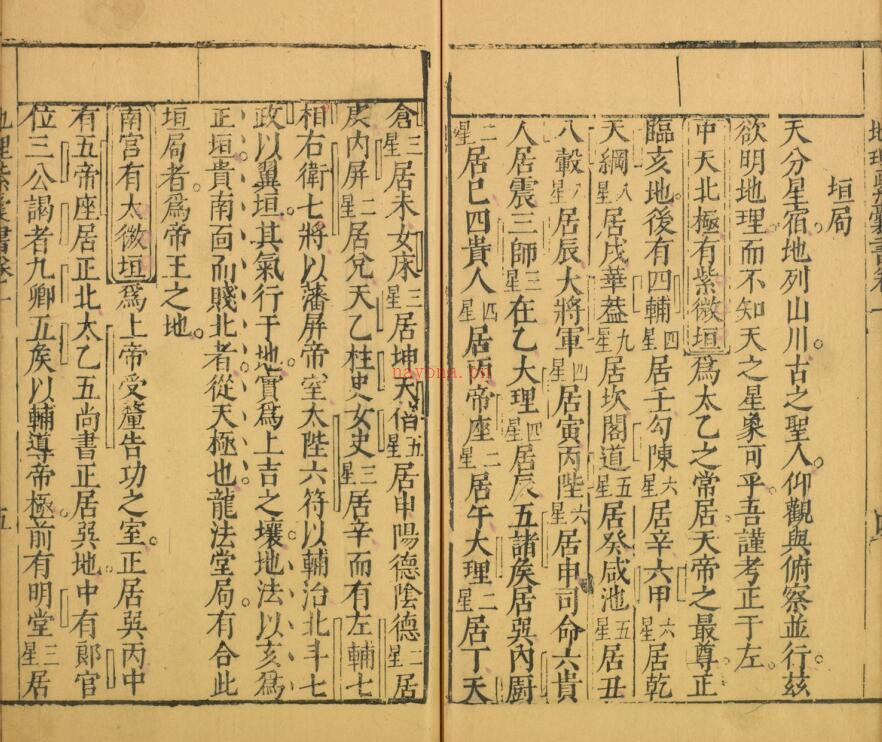 垣局
天分星宿地列山川古之聖人仰觀與俯察並行茲
欲明地理而不知天之星象可乎吾謹考正于左
中天北極有紫微垣爲太乙之常居天帝之最尊正
臨亥地後有四輔四星居壬勾陳六星居辛六甲六星居乾
天綱八星居戌華蓋九星居坎閣道五星居癸咸池五星居丑
八轂八星居辰大將軍四星居寅丙陛六星居申司命六貴
人居震三師三星在乙大理四星居辰五諸矦居巽內厨
二星居巳四貴人四星居丙帝座二星居午大理二星居丁天
倉三星居未女床三星居坤天偣五星居申陽德陰德二星居
庚內屏二星居兌天乙柱史女史三星居辛而有左輔七
相右衛七將以藩屏帝室太陛六符以輔治北斗七
政以翼垣其氣行于地實爲上吉之壤地法以亥爲
正垣貴南面而賤北者從天極也龍法堂局有合此
垣局者爲帝王之地
南宮有太微垣爲上帝受釐告功之室正居巽丙中
有五帝座居正北太乙五尚書正居巽地中有郞官
位三公謁者九卿五矦以輔導帝極前有明堂三星居
五
nayona.cn